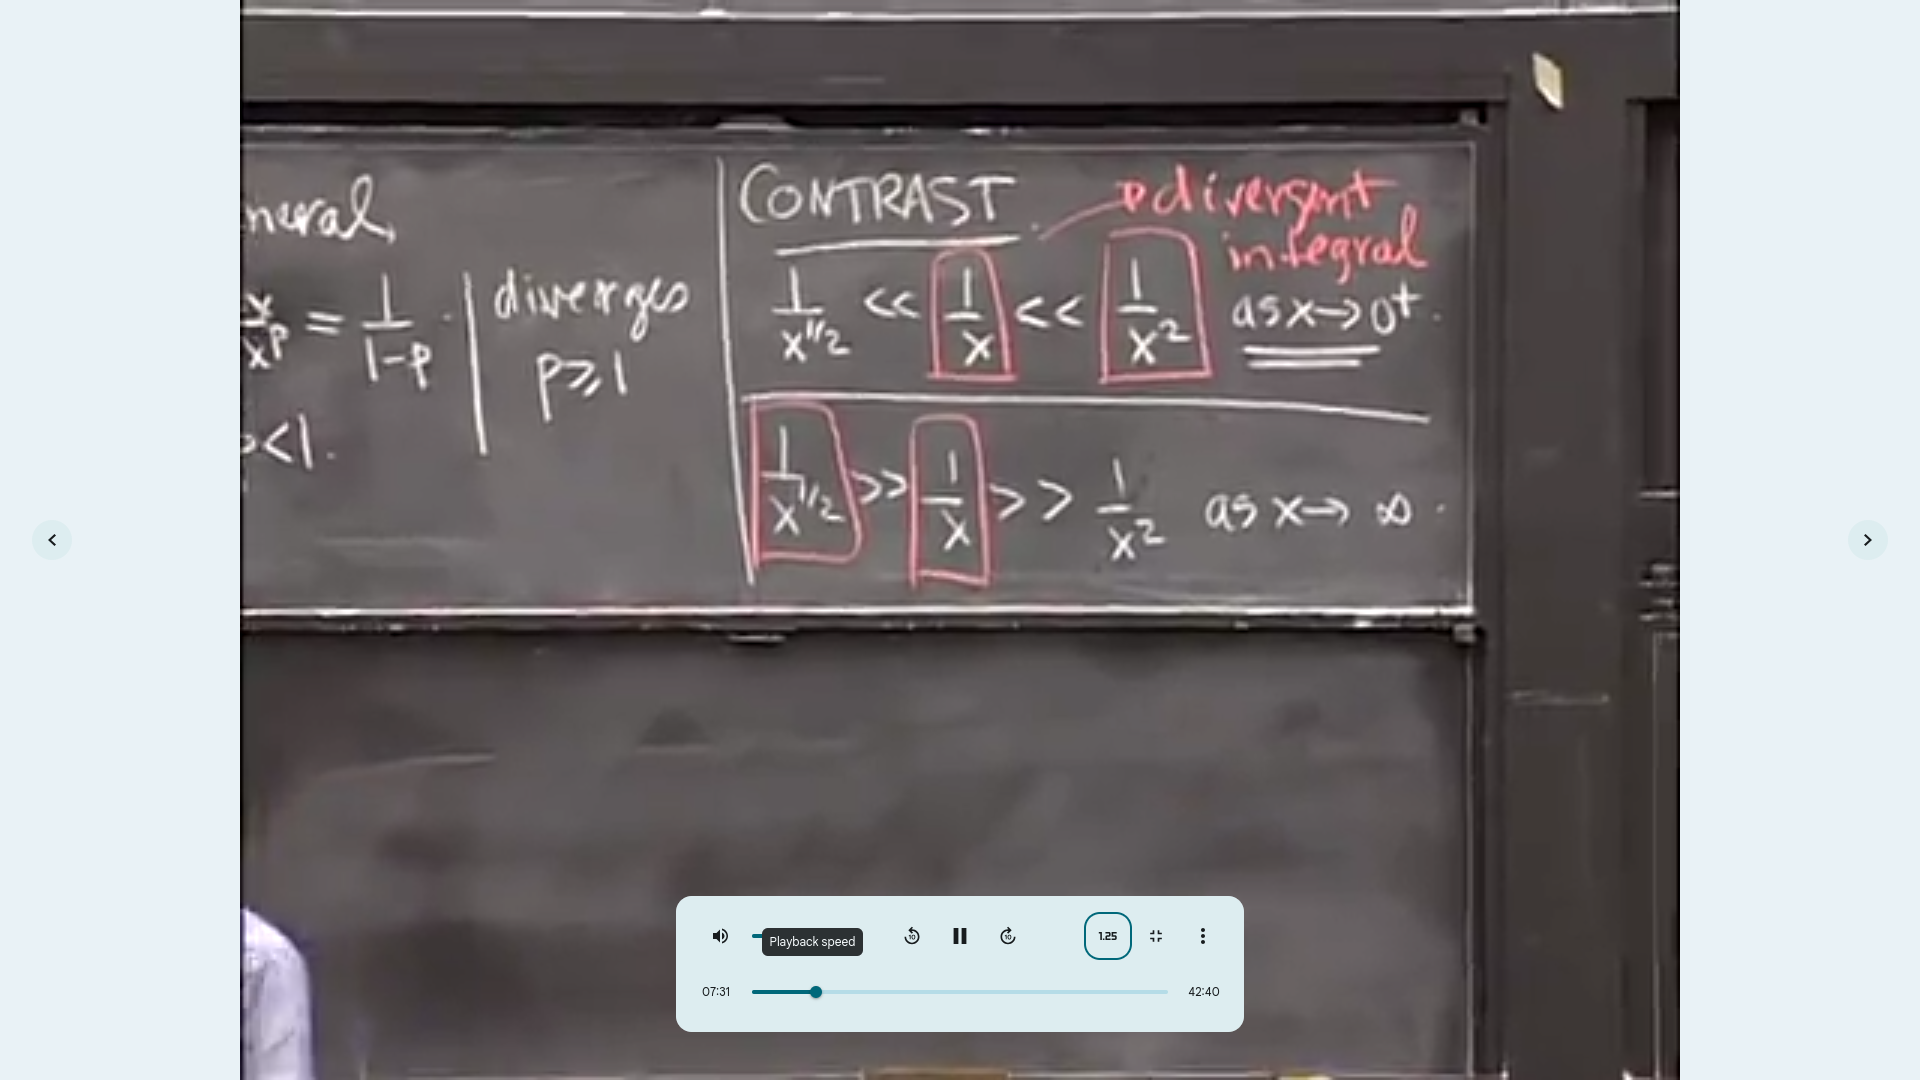 neral,
x/x^p = 1/(1-p) | diverges
p ≥ 1
p<1.
CONTRAST
divergent
integral
1/x^(1/2) << 1/x << 1/x^2 as x→0+.
1/x^(1/2) >> 1/x >> 1/x^2 as x→∞.
Playback speed
10
10
1.25
07:31
42:40